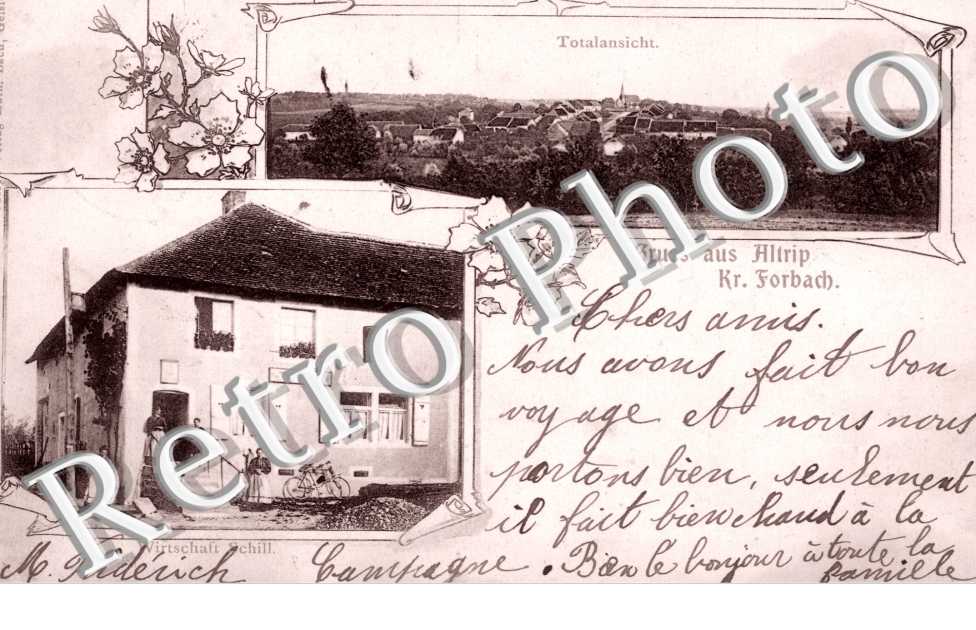 Totalansicht.
Gruss aus Altrip
Kr. Forbach.
Chers amis.
Nous avons fait bon
voyage et nous nous
portons bien, seulement
il fait bien chaud à la
Campagne. Bien le bonjour à toute la
famille
Wirtschaft Schill.
M.
Retro Photo